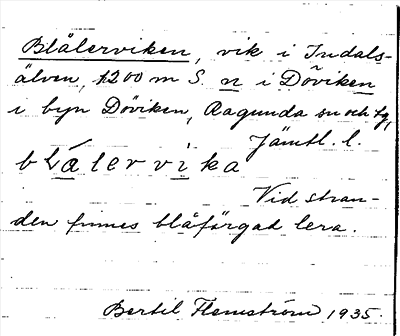 Blålerviken, vik i Indals-
älven, 1200 m S. n i Döviken
i byn Döviken, Ragunda sn och tg,
Jämtl. l.
blálervika
Vid stran-
den finnes blåfärgad lera.
Bertil Flemström 1935.